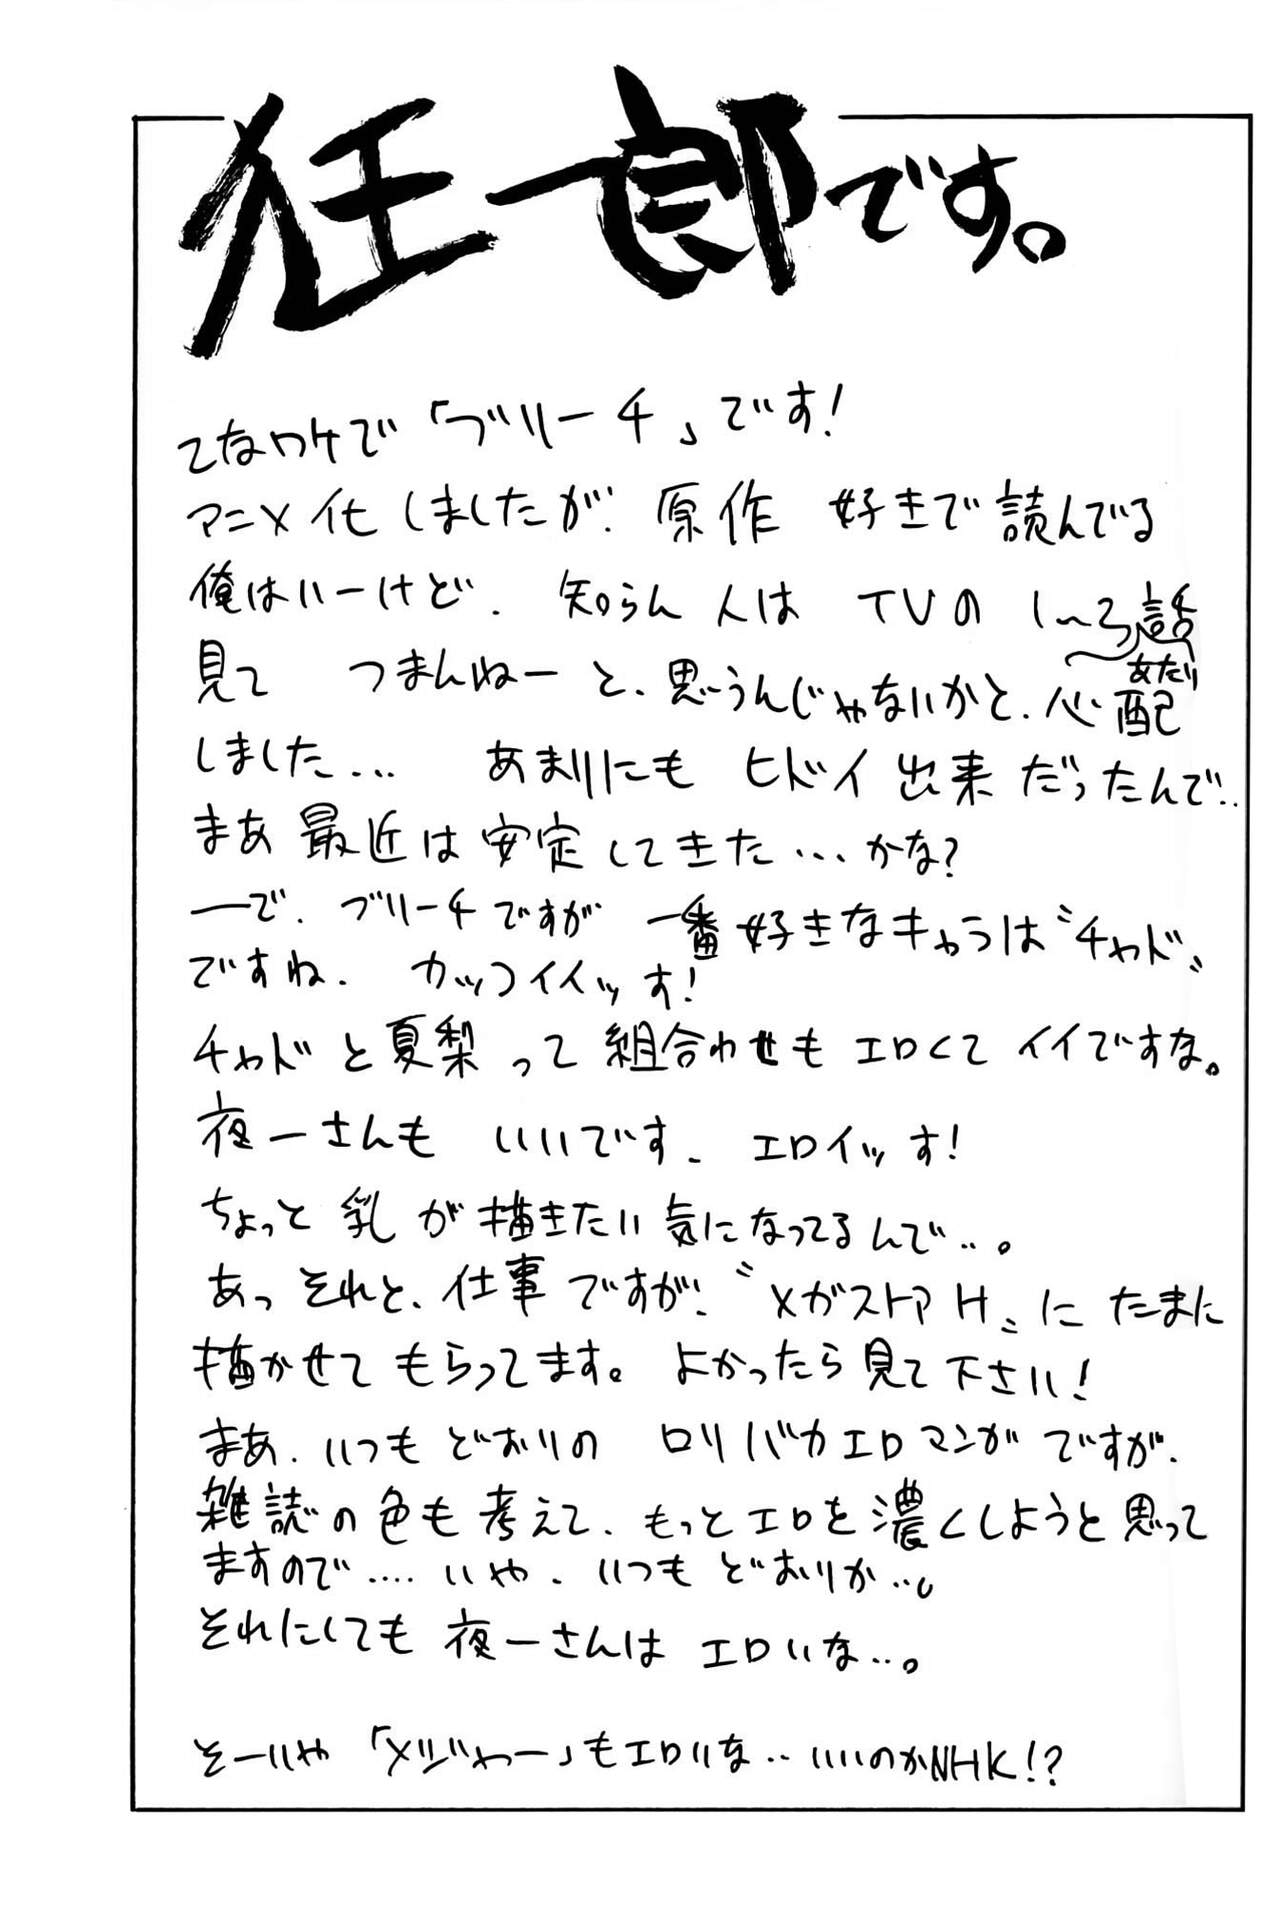 狂一郎です。
てなワケで「ブリーチ」です!
アニメ化しましたが、原作 好きで読んでる
俺はいーけど、知らん人は TVの 1〜3話
あたり
見て つまんねーと、思うんじゃないかと、心配
しました… あまりにも ヒドイ出来だったんで‥
まあ最近は安定してきた…かな?
―で、ブリーチですが 一番好きなキャラは〝チャド〟
ですね、カッコイイッす!
チャドと夏梨って組合わせもエロくてイイですな。
夜一さんも いいです、エロイッす!
ちょっと乳が描きたい気になってるんで‥。
あっそれと、仕事ですが、〝メガストアH〟に たまに
描かせてもらってます。よかったら見て下さい!
まあ、いつもどおりの ロリバカエロマンガですが、
雑誌の色も考えて、もっとエロを濃くしようと思って
ますので‥‥いや、いつもどおりか‥。
それにしても夜一さんは エロいな‥。
そーいや「メジャー」もエロいな‥いいのかNHK!?